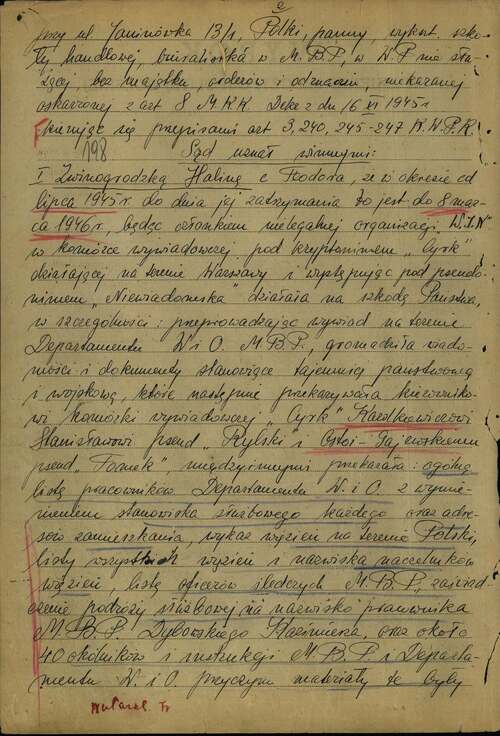 2
przy ul. Janinówka 13/1, Polki, panny, wykszt. szko-
ły handlowej, biuralistki w M.B.P., w W.P. nie słu-
żącej, bez majątku, orderów i odznaczeń, niekaranej
oskarżonej z art 8 M.K.K. Dekr z dn 16 XI 1945 r
kierując się przepisami art 3, 240, 245-247 K.W.P.K.
198 Sąd uznał winnymi:
I Zwinogrodzką Halinę c Teodora, że w okresie od
lipca 1945 r. do dnia jej zatrzymania to jest do 8 mar-
ca 1946 r., będąc członkiem nielegalnej organizacji „W.I.N"
w komórce wywiadowczej pod kryptonimem „Cyrk"
działającej na terenie Warszawy i występując pod pseudo-
nimem „Niewiadomska" działała na szkodę Państwa,
w szczególności: przeprowadzając wywiad na terenie
Departamentu W. i O. M.B.P., gromadziła wiado-
mości i dokumenty stanowiące tajemnicę państwową
i wojskową, które następnie przekazywała kierowniko-
wi komórki wywiadowczej „Cyrk"
Stanisławowi pseud „Rylski" i Gajewskiemu
pseud „Tomek", między innymi przekazała: ogólną
listę pracowników Departamentu W. i O. z wymie-
nieniem stanowiska służbowego każdego oraz adre-
sów zamieszkania, wykaz więzień na terenie Polski,
listy wszystkich więzień i nazwiska naczelników
więzień, listę oficerów śledczych M.B.P., zaświad-
czenie podróży służbowej na nazwisko pracownika
M.B.P. Dybowskiego Kazimierza, oraz około
40 okólników i instrukcji M.B.P. i Departa-
mentu W. i O. przyczym materiały te były